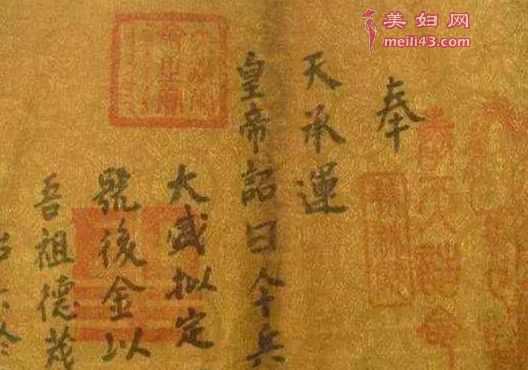 奉
天承運
皇帝詔曰今兵
大盛拟定
號後金以
吾祖德茂
美妇网
meili43.com